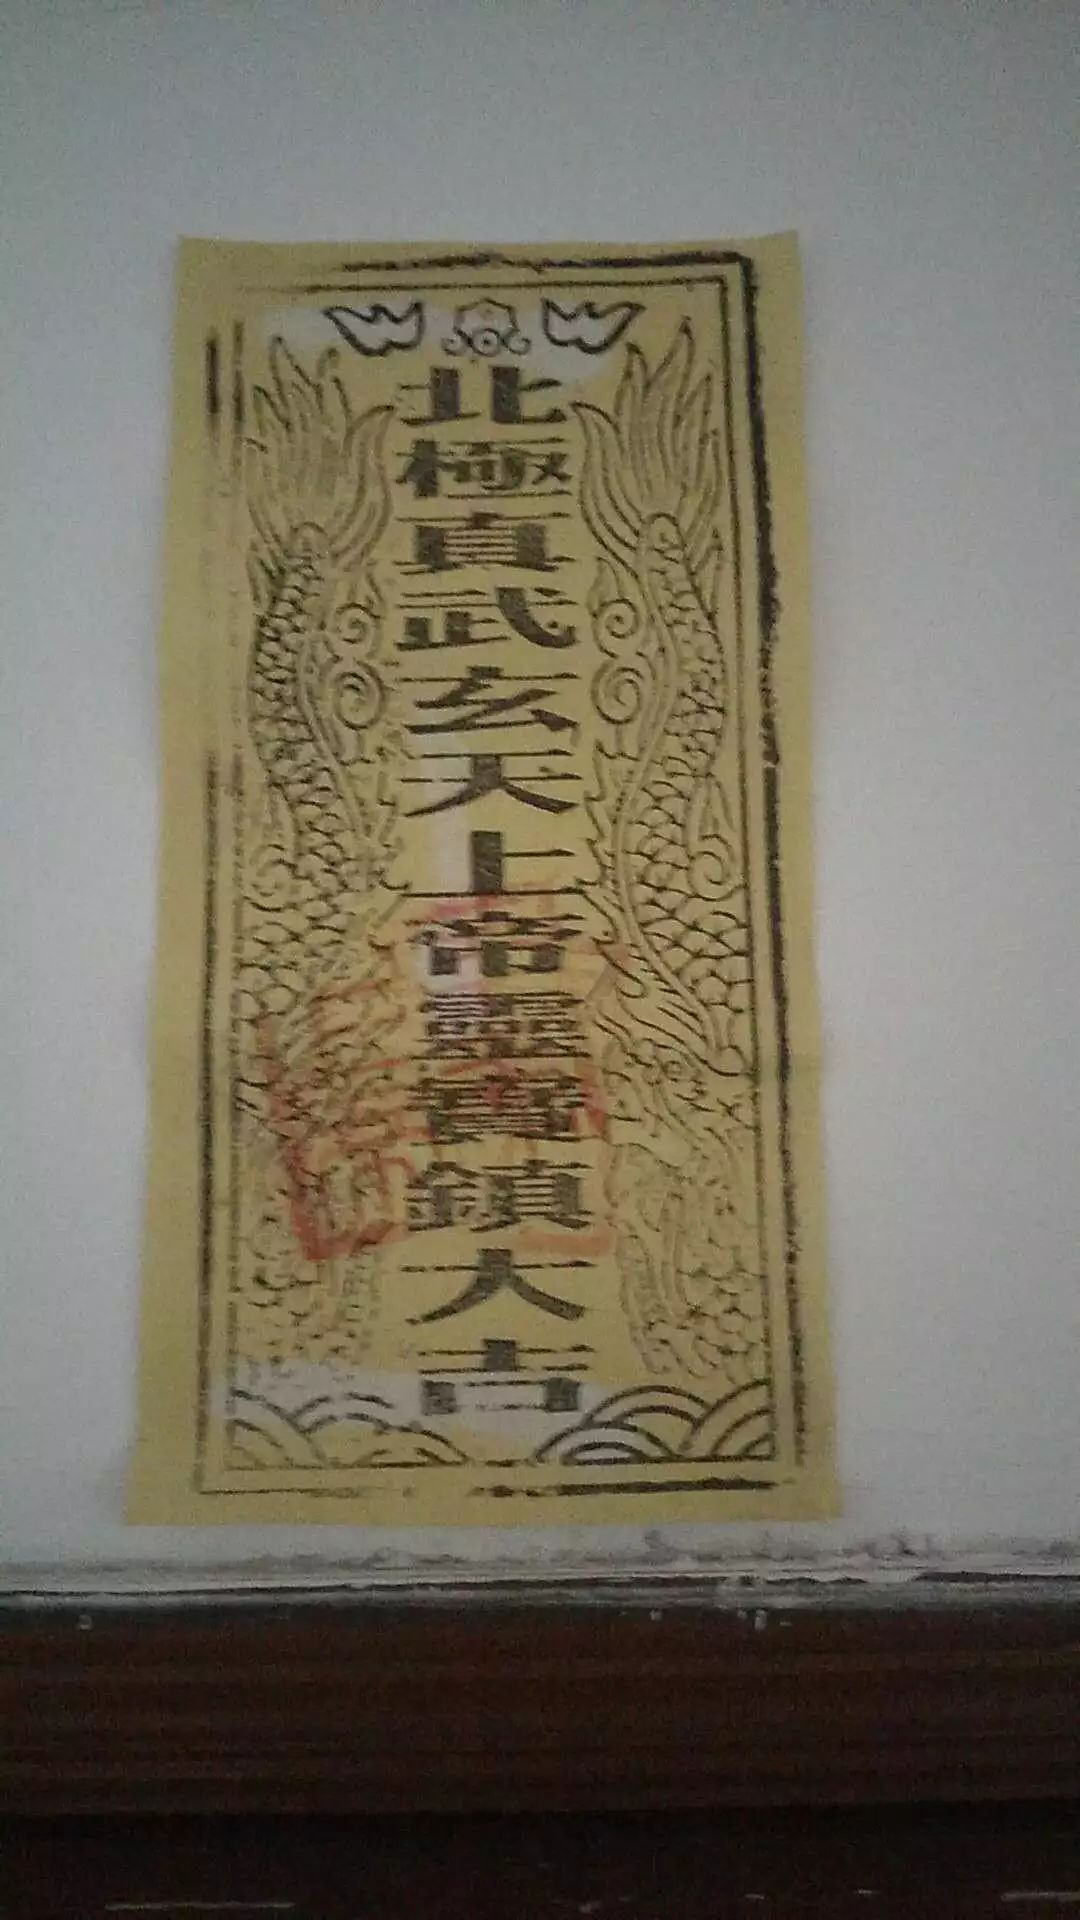 北極真武玄天上帝靈寶鎮大吉